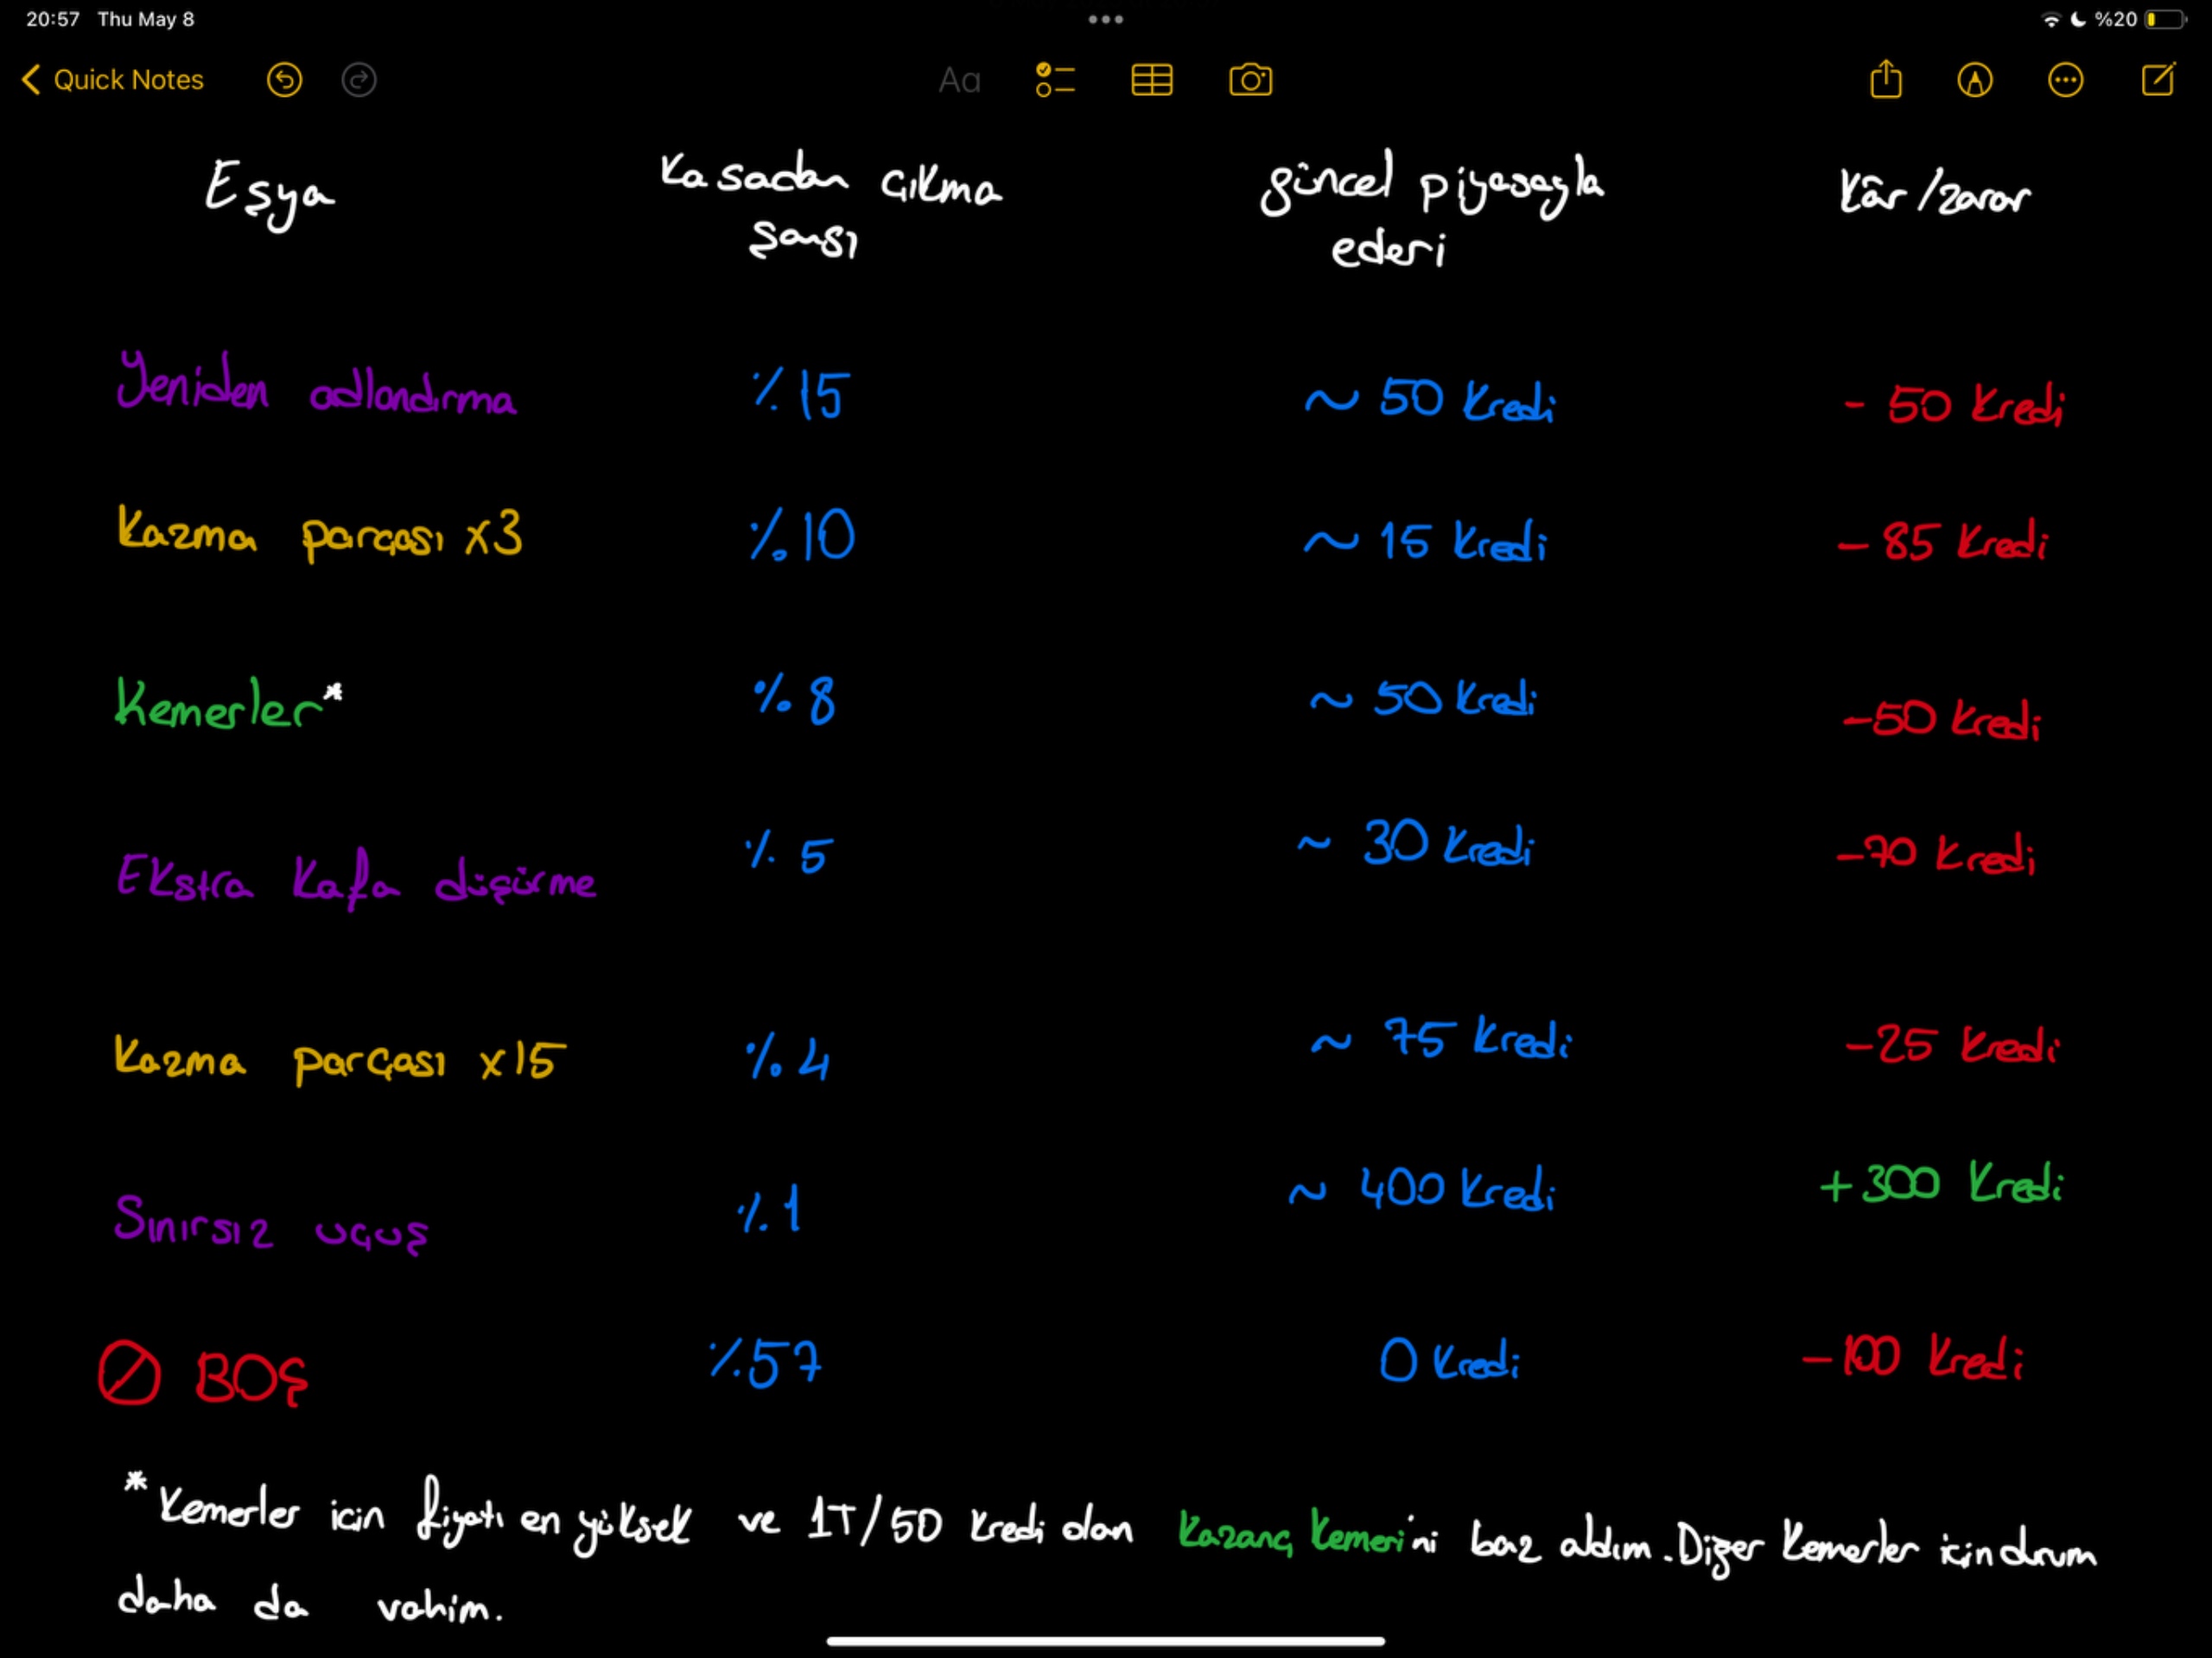 20:57 Thu May 8
%20
Quick Notes
Aa
Eşya
Kasadan çıkma şansı
güncel piyasayla ederi
Kâr/zarar
Yeniden adlandırma %15 ~ 50 Kredi - 50 Kredi
Kazma parçası x3 %10 ~ 15 Kredi - 85 Kredi
Kemerler* %8 ~ 50 Kredi -50 Kredi
Ekstra Kafa düşürme %5 ~ 30 Kredi -70 Kredi
Kazma parçası x15 %4 ~ 75 Kredi -25 Kredi
Sınırsız uçuş %1 ~ 400 Kredi +300 Kredi
BOŞ %57 0 Kredi -100 Kredi
*Kemerler icin fiyatı en yüksek ve 1T/50 Kredi olan Kazanç Kemeri'ni baz aldım. Diğer Kemerler icin durum
daha da vahim.